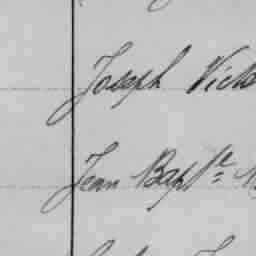 Joseph Victo
Jean Bapte